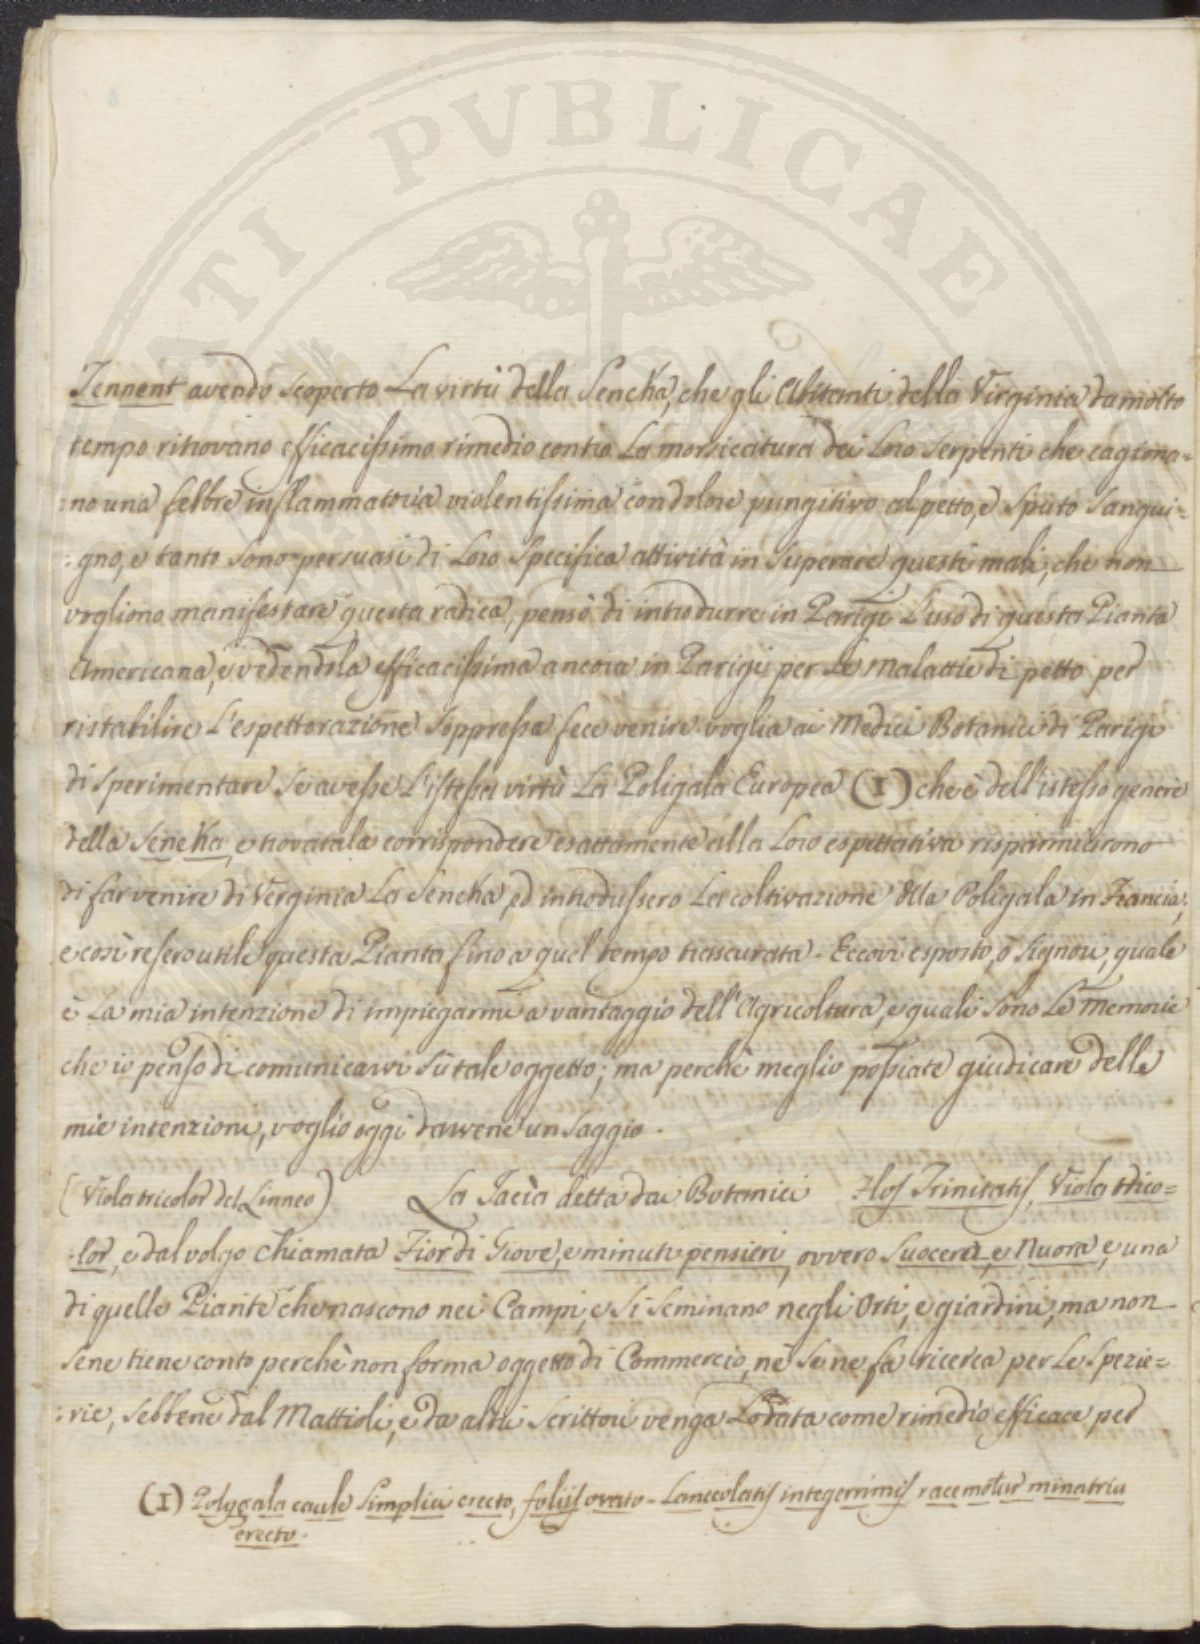 ATI PVBLICAE
Tennent avendo scoperto La virtù della Senekà, che gli Abitanti della Virginia da molto
tempo ritrovano efficacissimo rimedio contro La morsicatura dei Loro Serpenti che cagiona=
:no una febbre inflammatoria violentissima con dolore pungitivo al petto, e Sputo Sangui=
:gno, e tanto sono persuasi di Loro Specifica attività in Superare questi mali, che non
vogliono manifestare questa radica, pensò di introdurre in Parigi L'uso di questa Pianta
Americana, e vedendola efficacissima ancora in Parigi per Le Malattie di petto per
ristabilire L'espettorazione Soppressa fece venire voglia ai Medici Botanici di Parigi
di Sperimentare Se avesse L'istessa virtù La Poligala Europea (1) che è dell'istesso genere
della Seneka, e trovatala corrispondere esattamente alla Loro espettativa risparmiarono
di far venire di Verginia La Seneka, ed introdussero La coltivazione della Poligala in Francia,
e così resero utile questa Pianta fino a quel tempo trascurata. Eccovi esposto, ò Signori, quale
è La mia intenzione di impiegarmi a vantaggio dell'Agricoltura, e quali Sono Le Memorie
che io penso di comunicarvi Sù tale oggetto; ma perchè meglio possiate giudicare delle
mie intenzioni, voglio oggi darvene un Saggio.
(Viola tricolor del Linneo) La Jacèa detta dai Botanici Flos Trinitatis, Viola trico=
:lor, e dal volgo chiamata Fior di Giove, e minuti pensieri, ovvero Suocera, e Nuora, e una
di quelle Piante che nascono nei Campi, e Si Seminano negli Orti, e giardini, ma non
Se ne tiene conto perchè non forma oggetto di Commercio, nè Se ne fa ricerca per Le Spezie=
:rie, Sebbene dal Mattioli, e da altri Scrittori venga Lodata come rimedio efficace per
(1) Polygala caule Simplici erecto, foliis ovato-Lanceolatis integerrimis
erecto.